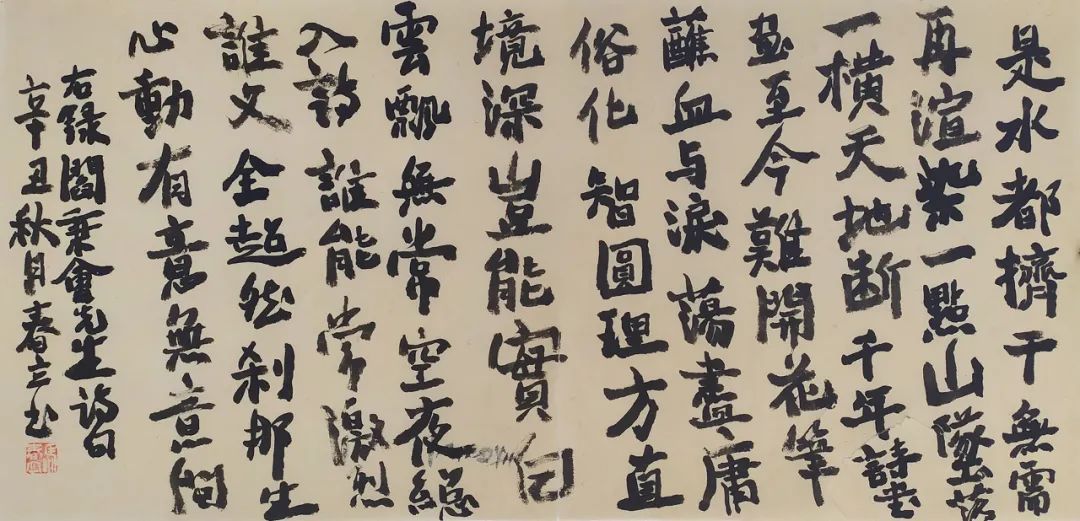 是水都擠干無需
再渲染一點山墜落
一橫天地断千年詩書
畫至今難開花筆
蘸血与淚蕩盡庸
俗化智圓理方直
境深豈能實白
雲飄無常空夜總
入詩誰能常激烈
誰文全超然刹那生
心動有意無意間
右錄閻秉會先生詩句
辛丑秋月春立书